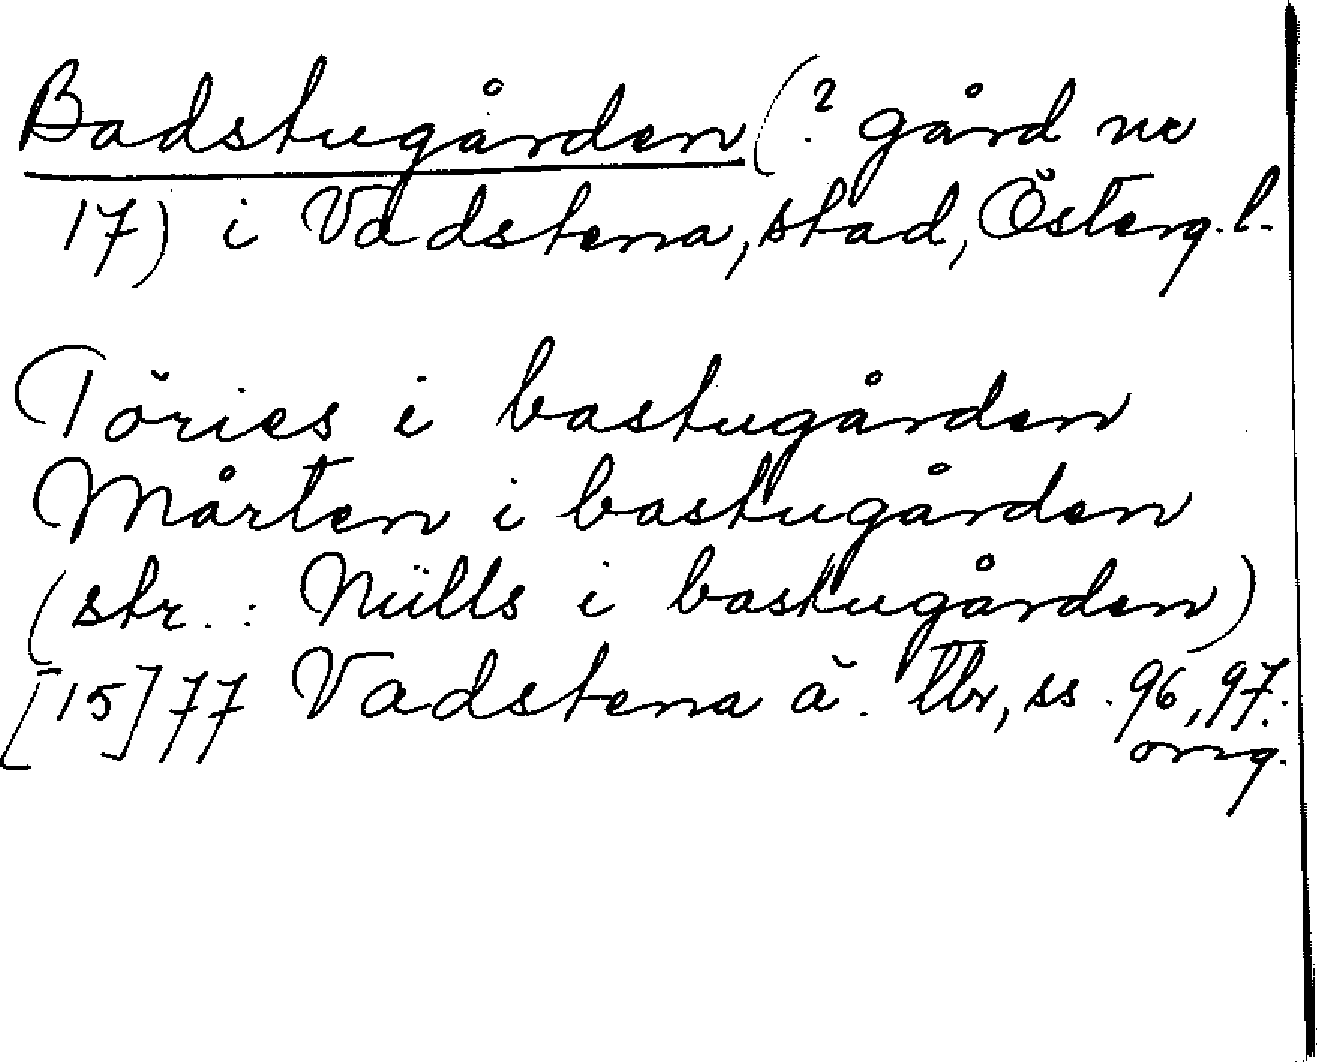 Badstugården (? gård nr
17) i Vadstena, stad, Österg. l.
Töries i bastugården
Mårten i bastugården
(str. : Nills i bastugården)
[15]77 Vadstena ä. tbr, ss. 96, 97.
orig.